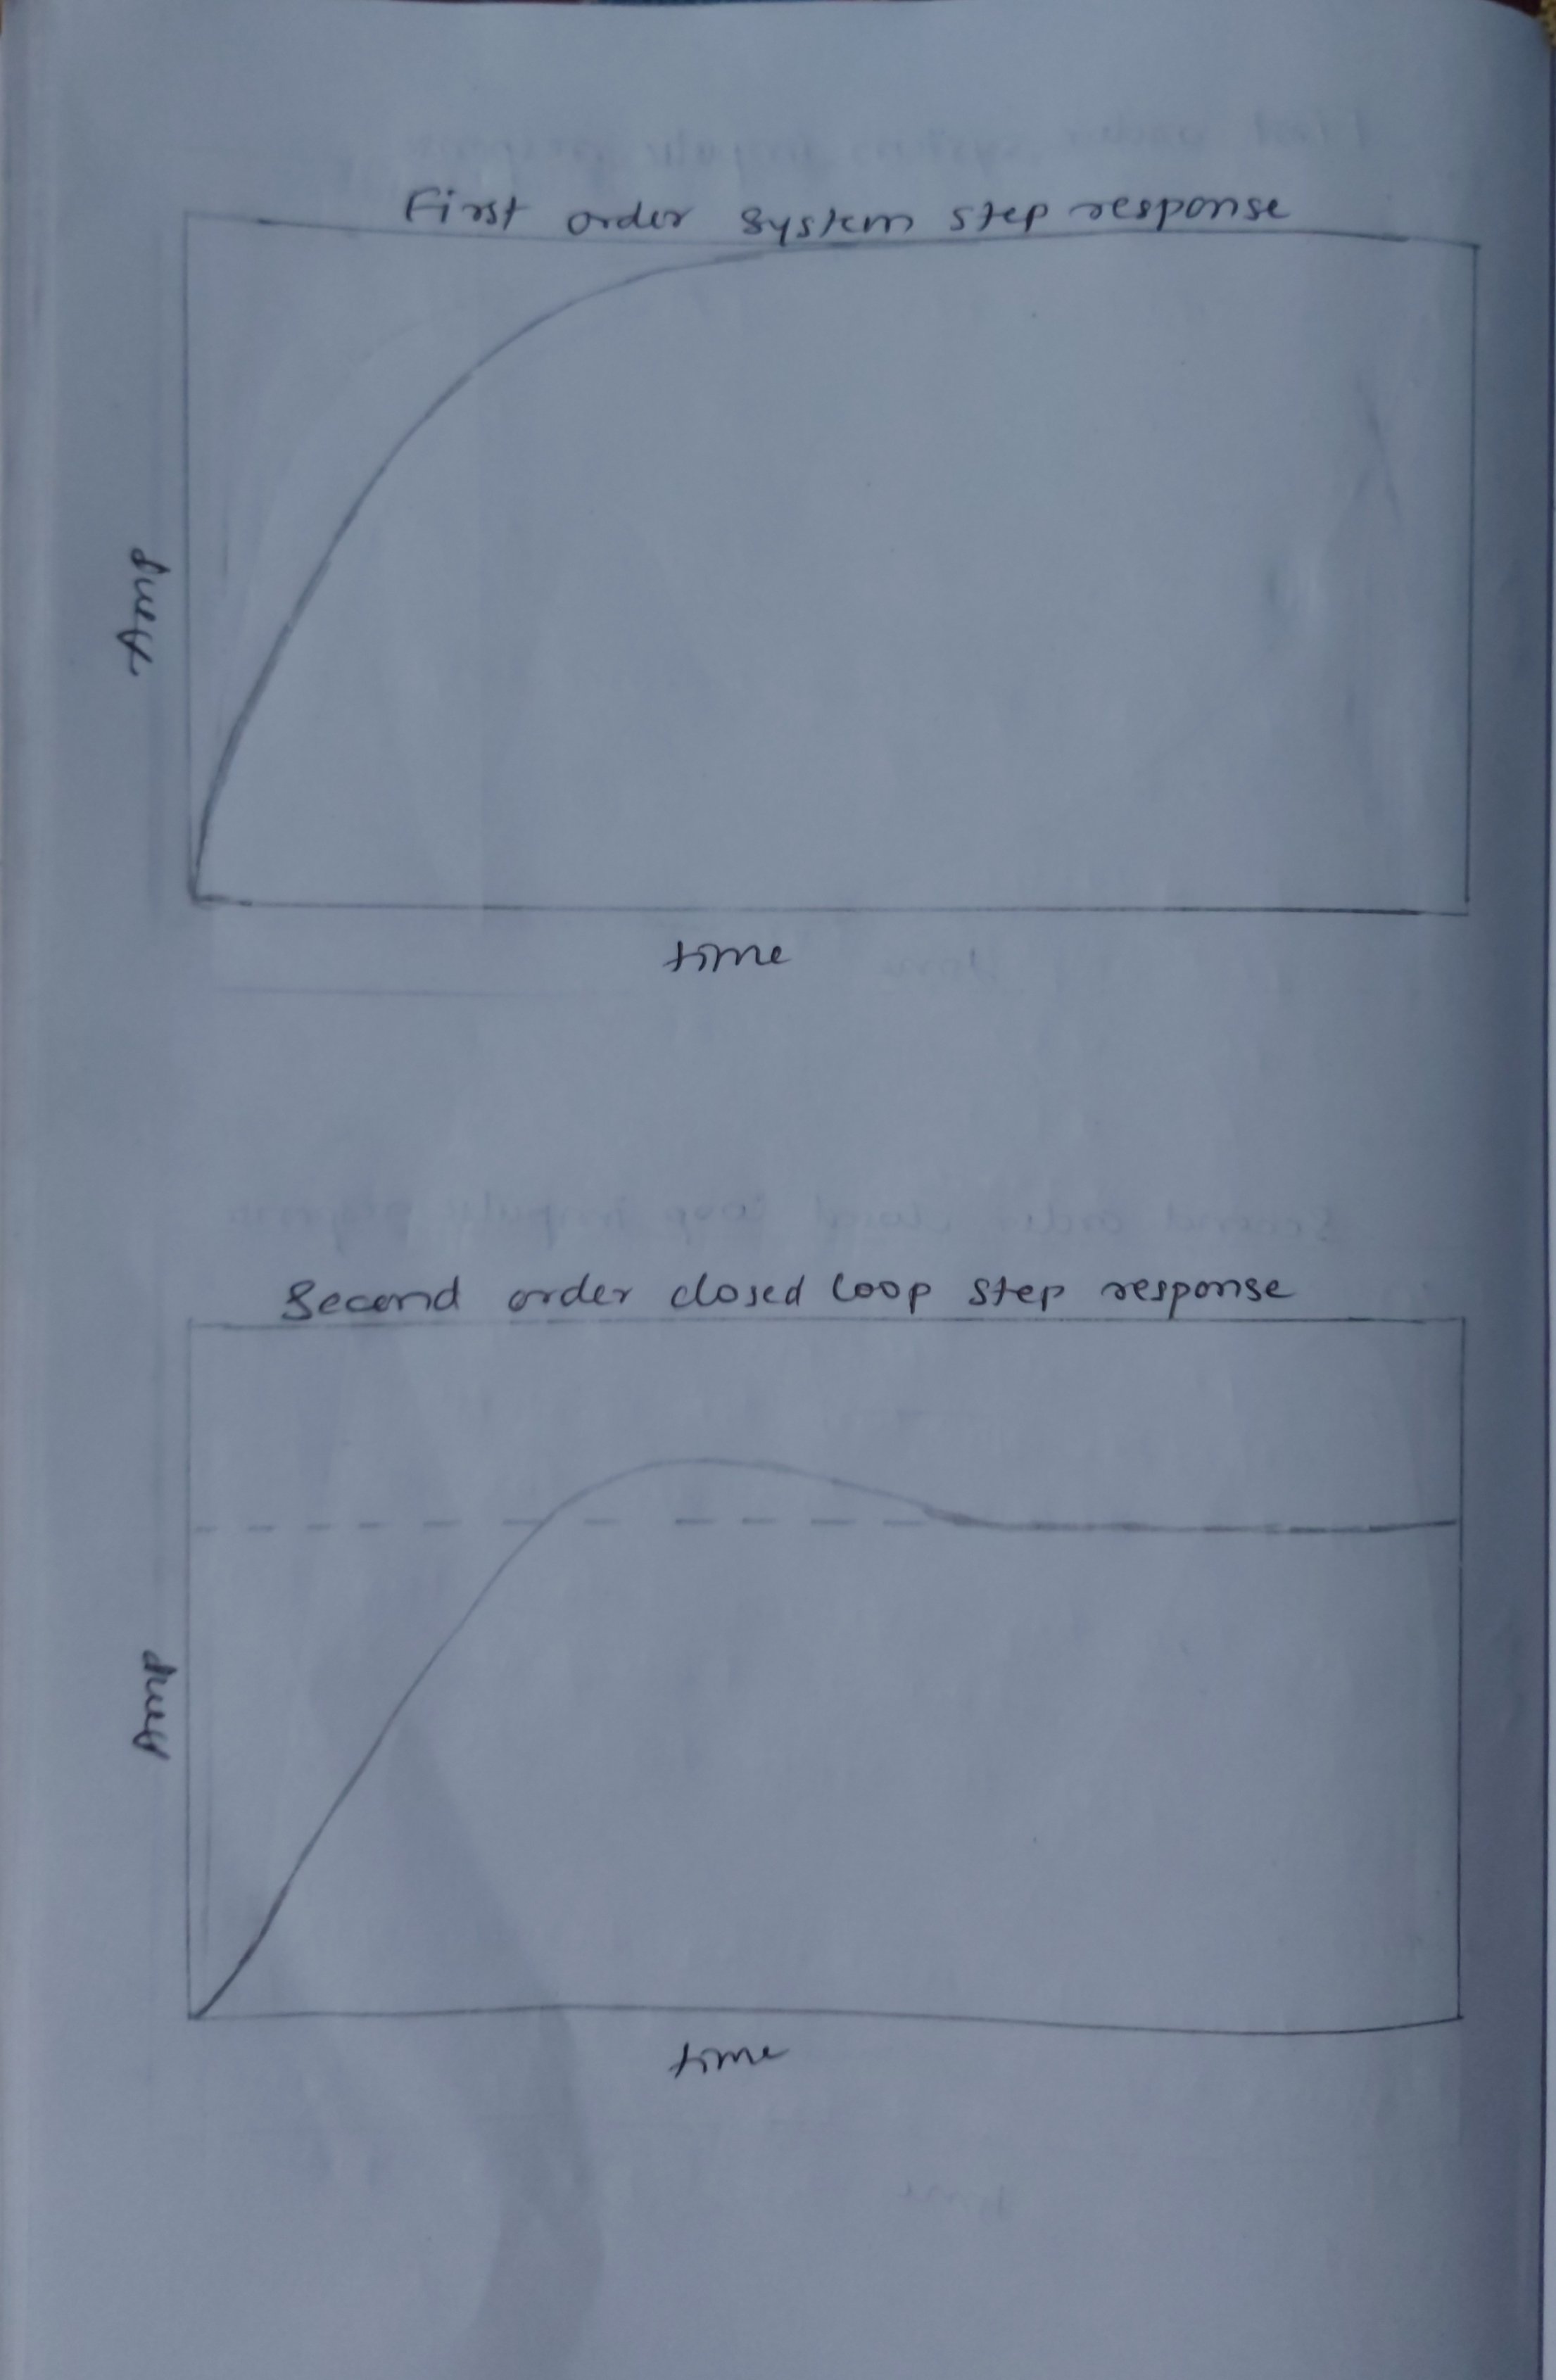 First order system step response
Amp
time
Second order closed loop step response
Amp
time